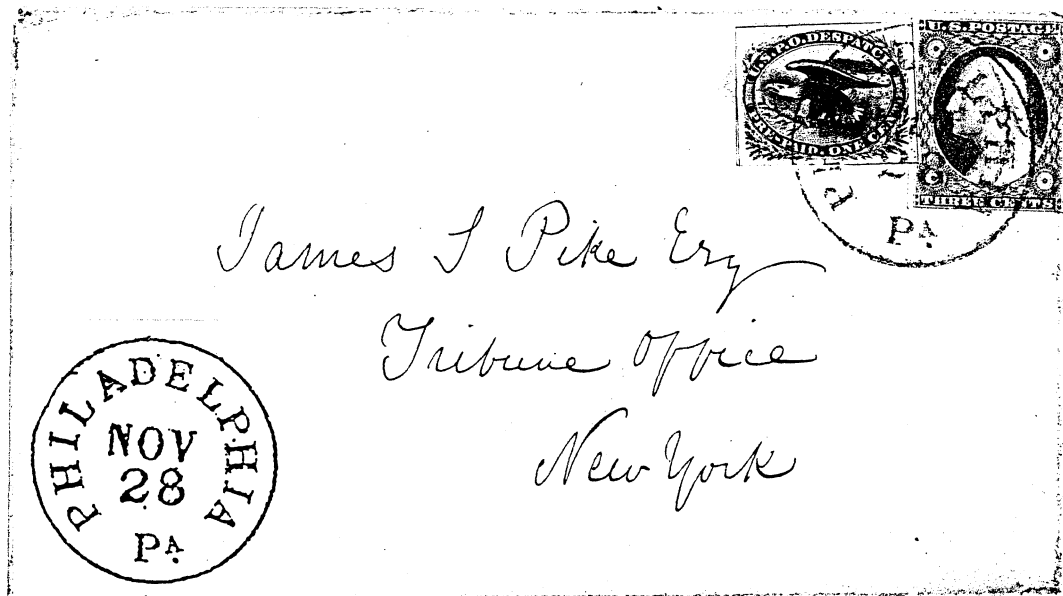 U.S.P.O. DESPATCH
PRE-PAID. ONE CENT
U.S. POSTAGE
THREE CENTS
PA
James S Pike Esq
Tribune Office
New York
PHILADELPHIA
NOV
28
PA